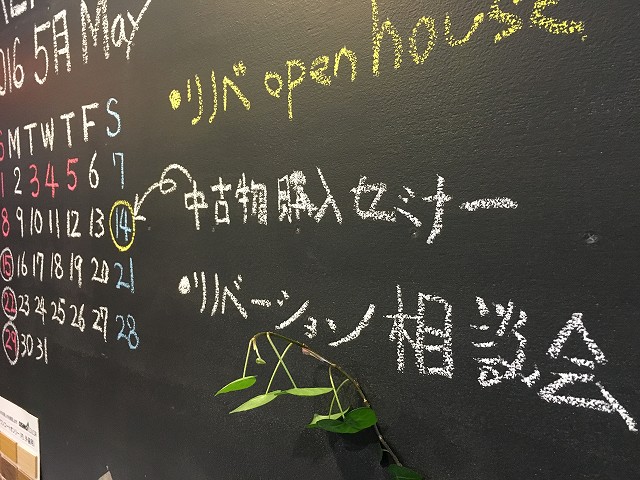 2016 5月 May
・リリベ open house
S M T W T F S
1 2 3 4 5 6 7
8 9 10 11 12 13 14
中古物購入セミナー
15 16 17 18 19 20 21
22 23 24 25 26 27
28
・リリベーション相談会
29 30 31